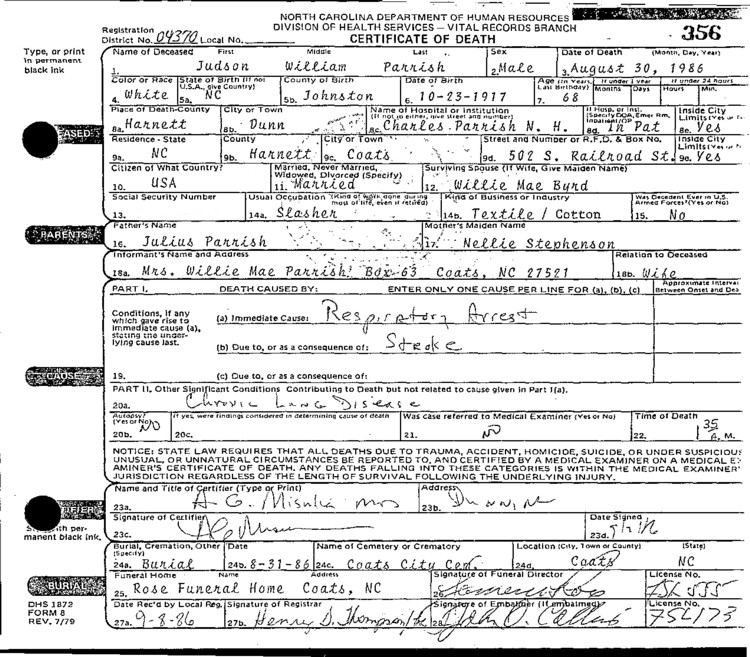 NORTH CAROLINA DEPARTMENT OF HUMAN RESOURCES
Registration DIVISION OF HEALTH SERVICES – VITAL RECORDS BRANCH
District No. 04370 Local No. CERTIFICATE OF DEATH 356
Type, or print in permanent black ink
Name of Deceased First Middle Last Sex Date of Death (Month, Day, Year)
1. Judson William Parrish 2. Male 3. August 30, 1986
Color or Race State of Birth (If not U.S.A., give Country) County of Birth Date of Birth Age (In Years Last Birthday) If under 1 year Months Days If under 24 hours Hours Min.
4. White 5a. NC 5b. Johnston 6. 10-23-1917 7. 68
Place of Death-County City or Town Name of Hospital or Institution (If not in either, give street and number) If Hosp. or Inst. (Specify DOA, Emer Rm, Inpatient/OP Inside City Limits
8a. Harnett 8b. Dunn 8c. Charles Parrish N. H. 8d. In Pat 8e. Yes
Residence - State County City or Town Street and Number or R.F.D. & Box No. Inside City Limits
9a. NC 9b. Harnett 9c. Coats 9d. 502 S. Railroad St. 9e. Yes
Citizen of What Country? Married, Never Married, Widowed, Divorced (Specify) Surviving Spouse (If Wife, Give Maiden Name)
10. USA 11. Married 12. Willie Mae Byrd
Social Security Number Usual Occupation (Kind of work done during most of life, even if retired) Kind of Business or Industry Was Decedent Ever in U.S. Armed Forces? (Yes or No)
13. 14a. Slasher 14b. Textile / Cotton 15. No
PARENTS
Father's Name Mother's Maiden Name
16. Julius Parrish 17. Nellie Stephenson
Informant's Name and Address Relation to Deceased
18a. Mrs. Willie Mae Parrish Box 63 Coats, NC 27521 18b. Wife
PART I. DEATH CAUSED BY: ENTER ONLY ONE CAUSE PER LINE FOR (a), (b), (c) Approximate Interval Between Onset and Dea
Conditions, if any which gave rise to immediate cause (a), stating the underlying cause last.
(a) Immediate Cause: Respiratory Arrest
(b) Due to, or as a consequence of: Stroke
CAUSE
19. (c) Due to, or as a consequence of:
PART II, Other Significant Conditions Contributing to Death but not related to cause given in Part I(a).
20a. Chronic Lung Disease
Autopsy? (Yes or No) If yes, were findings considered in determining cause of death Was case referred to Medical Examiner (Yes or No) Time of Death
20b. NO 20c. 21. NO 22. 35 A. M.
NOTICE: STATE LAW REQUIRES THAT ALL DEATHS DUE TO TRAUMA, ACCIDENT, HOMICIDE, SUICIDE, OR UNDER SUSPICIOUS
UNUSUAL, OR UNNATURAL CIRCUMSTANCES BE REPORTED TO, AND CERTIFIED BY A MEDICAL EXAMINER ON A MEDICAL EX
AMINER'S CERTIFICATE OF DEATH. ANY DEATHS FALLING INTO THESE CATEGORIES IS WITHIN THE MEDICAL EXAMINER'
JURISDICTION REGARDLESS OF THE LENGTH OF SURVIVAL FOLLOWING THE UNDERLYING INJURY.
Name and Title of Certifier (Type or Print) Address
23a. A G. 23b. Dunn, N
Signature of Certifier Date Signed
manent black ink,
23c. 23d.
Burial, Cremation, Other (Specify) Date Name of Cemetery or Crematory Location (City, Town or County) (State)
24a. Burial 24b. 8-31-86 24c. Coats City Cem. 24d. Coats NC
BURIAL
Funeral Home Name Address Signature of Funeral Director License No.
25. Rose Funeral Home Coats, NC 26.
DHS 1872
FORM 8
REV. 7/79
Date Rec'd by Local Reg. Signature of Registrar Signature of Embalmer (If embalmed) License No.
27a. 9-8-86 27b. Henry D. Thompson